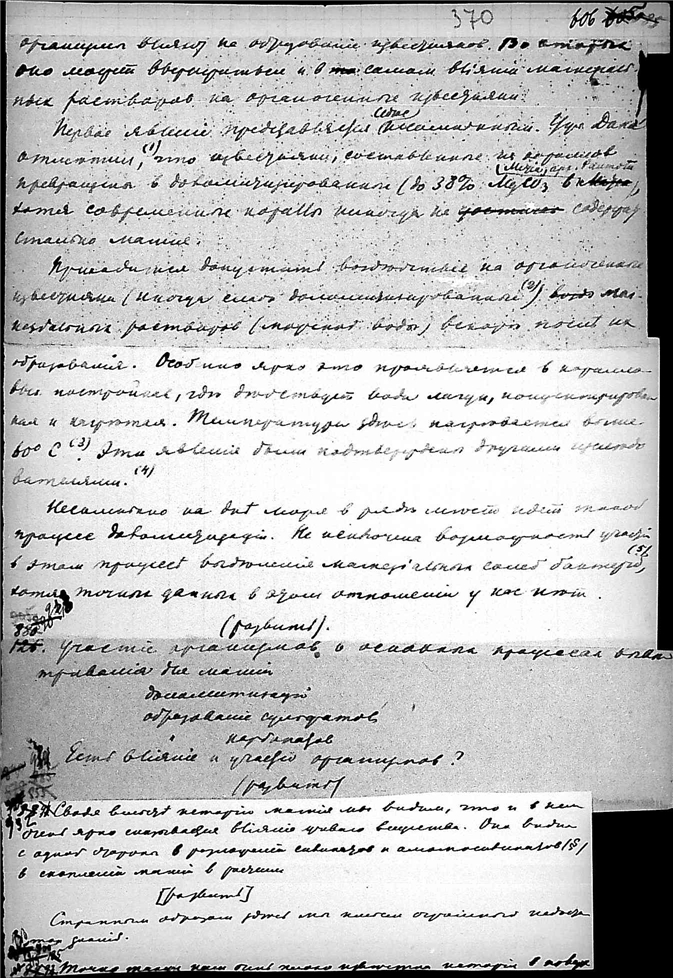 370 606
организмы вліяют на образованіе известняков. Во вторых
оно может выразиться и в самом вліяніи магнезіаль
ных растворов на органогенные известняки.
Первое явленіе представляется несомненным. Уже Дана
отметил,(1) что известняки, составленные из кораллов
превращены в доломитизированные (до 38% MgCO3 в
хотя современные кораллы никогда не содержат
столько магнія.
Приходится допустить воздействіе на органогенные
известняки (иногда слабо доломитизированные(2)) маг
незіальных растворов (морской воды) вскоре после их
образованія. Особенно ярко это проявляется в коралло
вых постройках, где действует вода лагун, концентрирован
ная и нагретая. Температура здесь нагревается выше
60° C(3). Эти явленія были подтверждены другими изследо
вателями.(4)
Несомненно на дне моря в ряде мест идет такой
процесс доломитизаціи. Не исключена возможность участія
в этом процессе выделенія магнезіальных солей бактерій,(5)
хотя точных данных в этом отношеніи у нас нет.
(развить).
участіе организмов в основных процессах
магнія
доломитизаціи
образованіе сульфатов
карбонатов
Есть вліяніе и участіе организмов?
(развить)
Сводя вместе исторію магнія мы видим, что и в ней
очень ярко сказывается вліяніе живого вещества. Оно видно
с одной стороны в разложеніи силикатов и алюмосиликатов(5)
в скопленіи магнія в
[развить]
Странным образом здесь мы имеем огромный недоста
ток знанія.
Точно также нам очень мало известна исторія